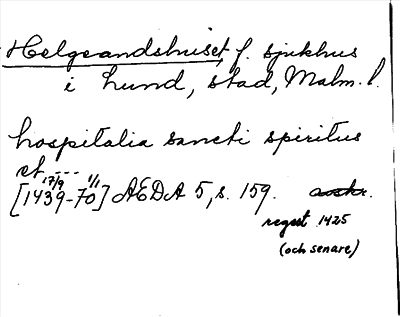 Helgeandshuset, f. sjukhus
i Lund, stad, Malm. l.
hospitalia sancti spiritus
et ----
[1439 17/9 - 70 1/1] AEDA 5, s. 159. avskr.
regest 1425
(och senare)